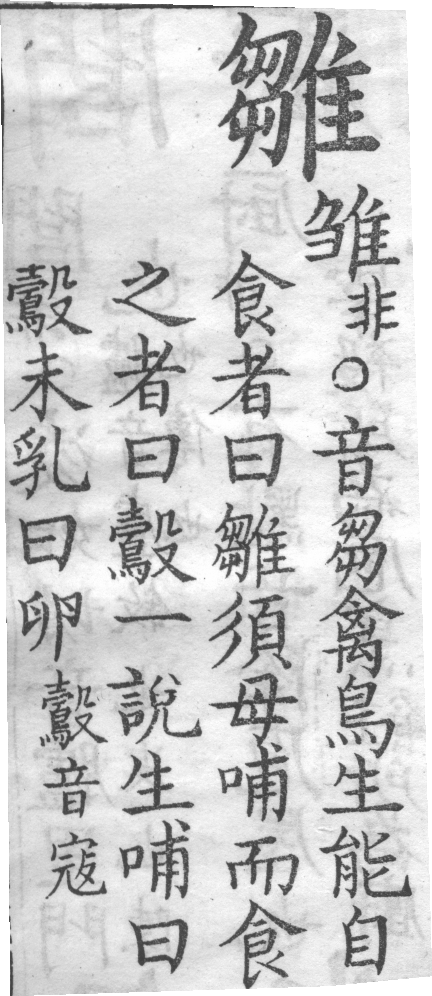 雛
雏非○音芻禽鳥生能自
食者曰雛須母哺而食
之者曰鷇一說生哺曰
鷇未乳曰卵鷇音寇